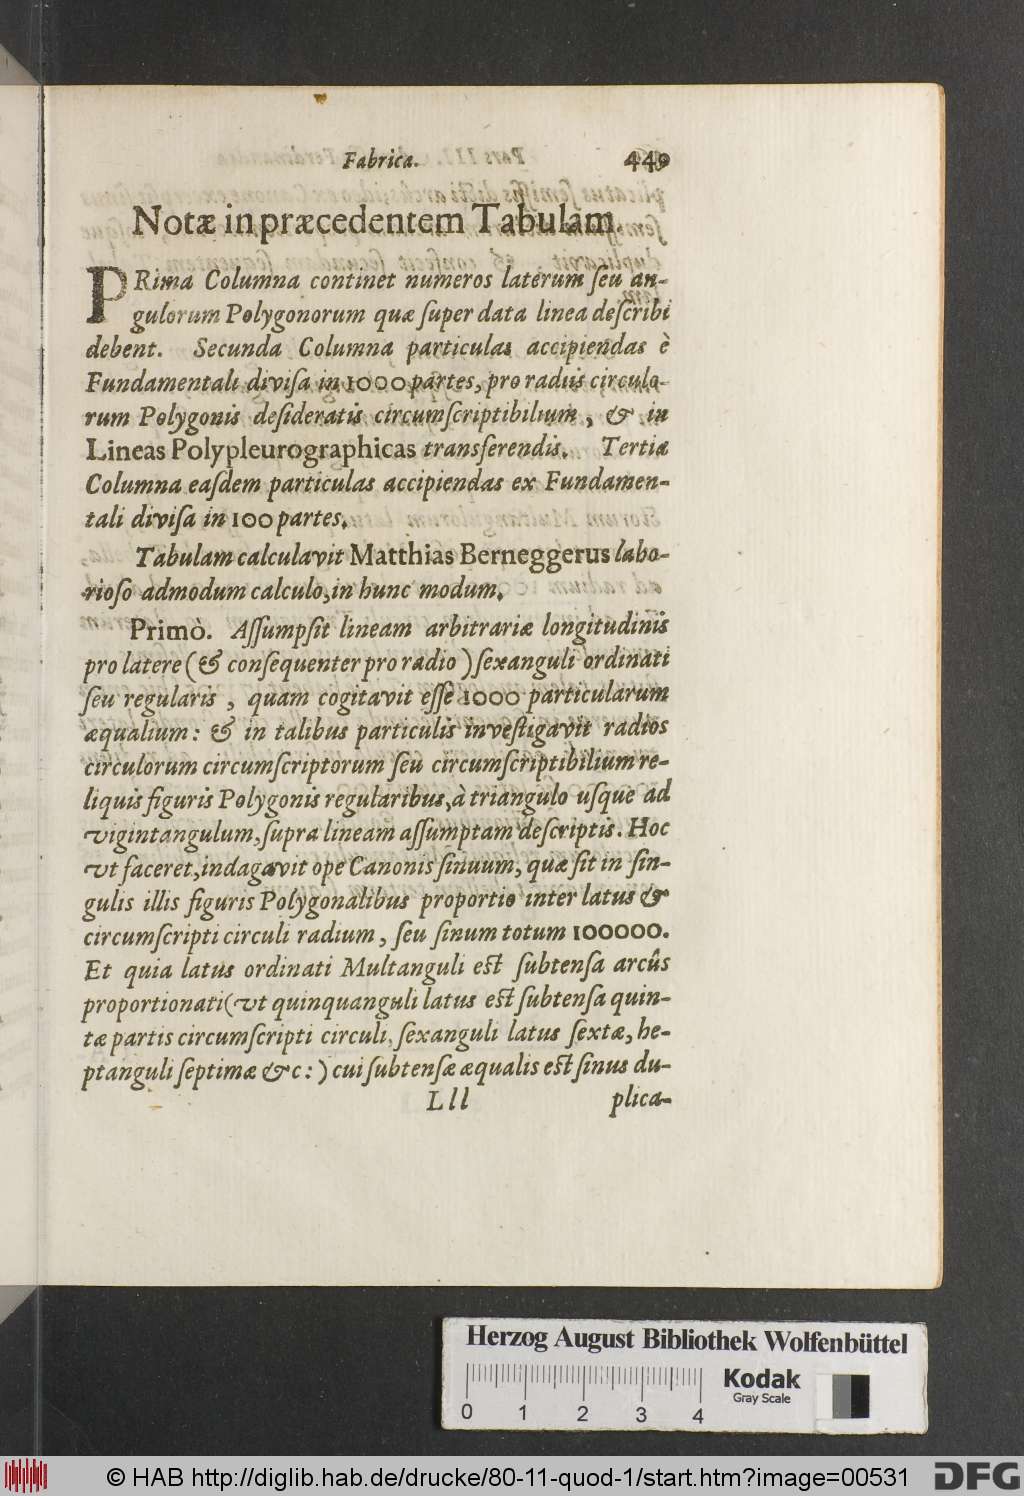 Fabrica. 449
Notæ in præcedentem Tabulam.
PRima Columna continet numeros laterum ſeu an-
gulorum Polygonorum quæ ſuper data linea deſcribi
debent. Secunda Columna particulas accipiendas è
Fundamentali diviſa in 1000 partes, pro radiis circulo-
rum Polygonis deſideratis circumſcriptibilium, & in
Lineas Polypleurographicas transferendis. Tertia
Columna eaſdem particulas accipiendas ex Fundamen-
tali diviſa in 100 partes.
Tabulam calculavit Matthias Berneggerus labo-
rioſo admodum calculo, in hunc modum.
Primò. Aſſumpſit lineam arbitrariæ longitudinis
pro latere (& conſequenter pro radio) ſexanguli ordinati
ſeu regularis, quam cogitavit eſſe 1000 particularum
æqualium: & in talibus particulis inveſtigavit radios
circulorum circumſcriptorum ſeu circumſcriptibilium re-
liquis figuris Polygonis regularibus, à triangulo uſque ad
vigintangulum, ſupra lineam aſſumptam deſcriptis. Hoc
vt faceret, indagavit ope Canonis ſinuum, quæ ſit in ſin-
gulis illis figuris Polygonalibus proportio inter latus &
circumſcripti circuli radium, ſeu ſinum totum 100000.
Et quia latus ordinati Multanguli eſt ſubtenſa arcûs
proportionati (vt quinquanguli latus eſt ſubtenſa quin-
tæ partis circumſcripti circuli, ſexanguli latus ſextæ, he-
ptanguli ſeptimæ &c:) cui ſubtenſæ æqualis eſt ſinus du-
Lll plica-
Herzog August Bibliothek Wolfenbüttel
0 1 2 3 4
Kodak
Gray Scale
© HAB http://diglib.hab.de/drucke/80-11-quod-1/start.htm?image=00531
DFG